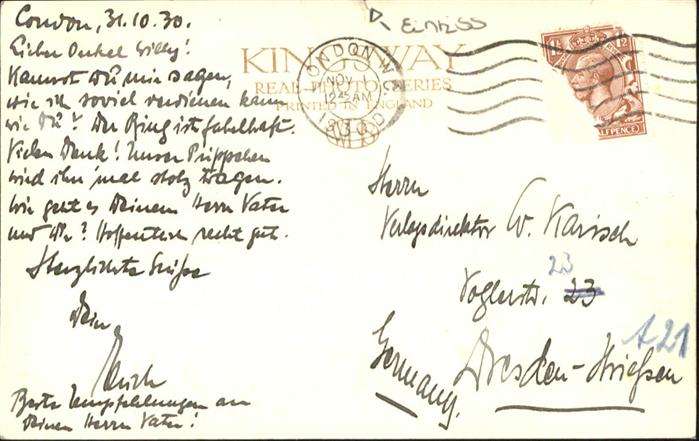 London, 31.10.30.
Lieber Onkel Willy!
Kannst Du mir sagen,
wie ich soviel verdienen kann
wie Du? Der Ring ist fabelhaft.
Vielen Dank! Unser Püppchen
wird ihn 'mal stolz tragen.
Wie geht es Deinem Herrn Vater
und Dir? Hoffentlich recht gut.
Herzlichste Grüße
Dein
Erich
Beste Empfehlungen an
Deinen Herrn Vater!
KINGSWAY
REAL PHOTO SERIES
PRINTED IN ENGLAND
LONDON W.C.
NOV 1
1930
HALFPENCE
Herrn
Verlagsdirektor W. Karisch
23
Voglerstr. 23
A 21
Dresden-
Germany.